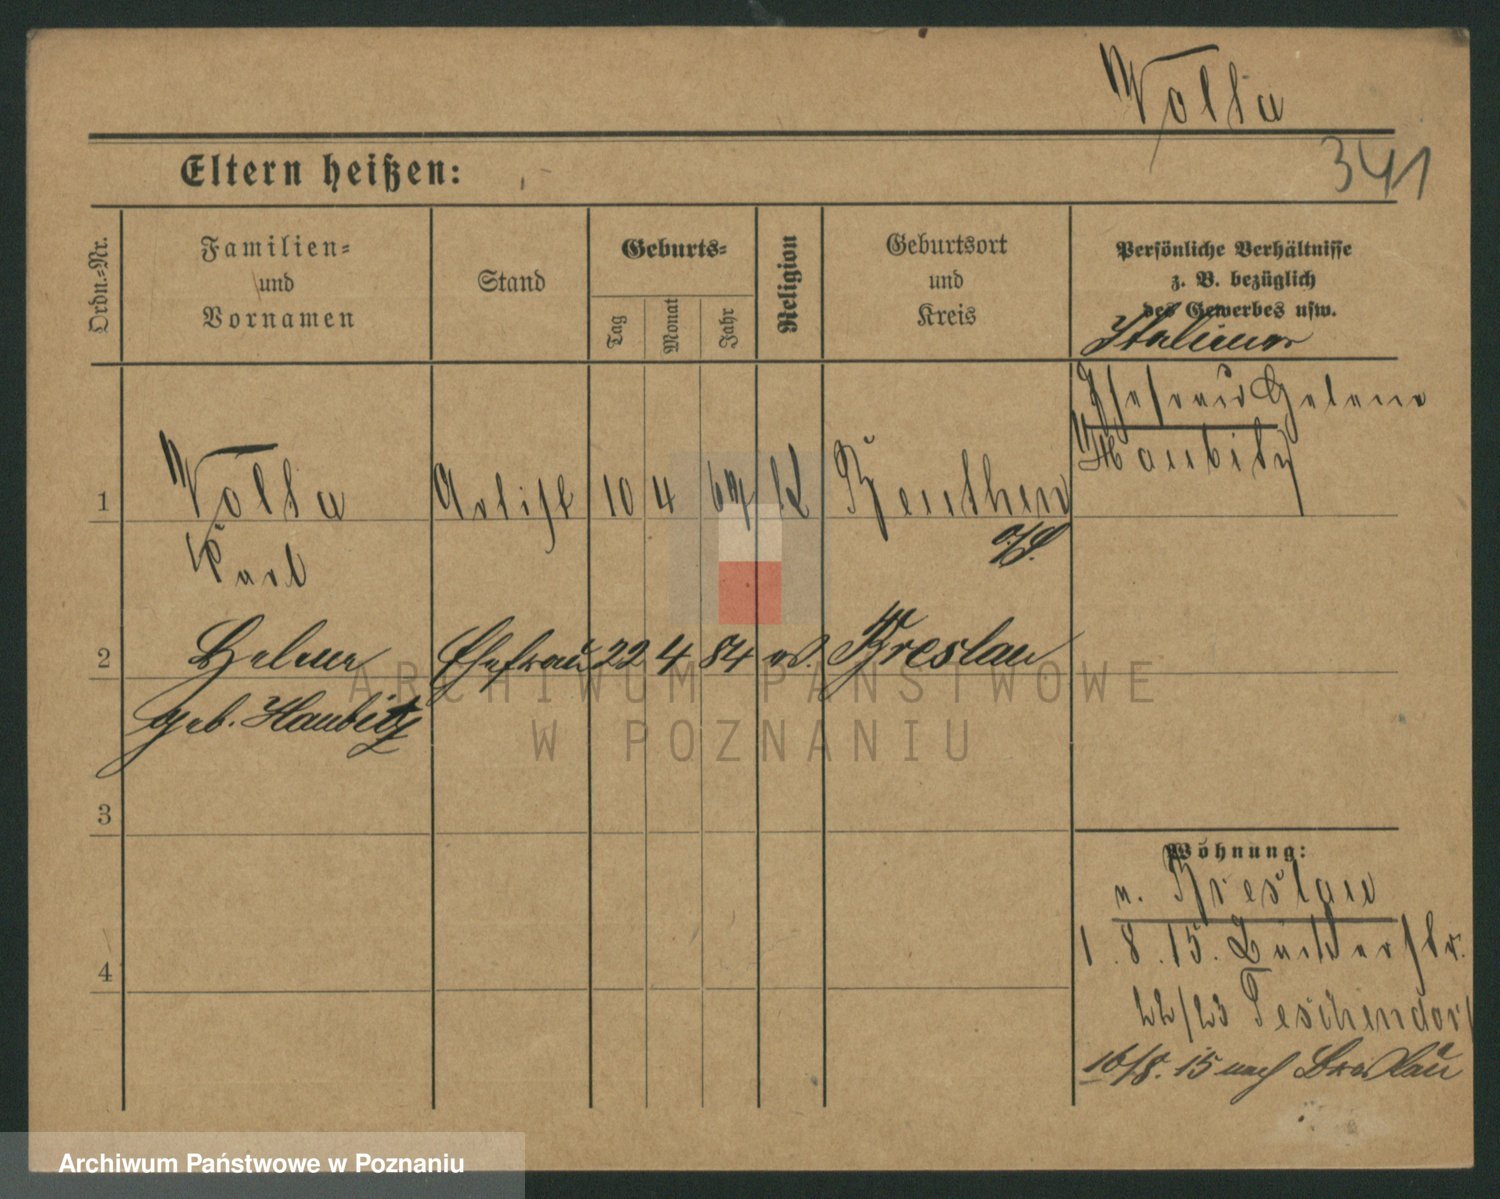 Volta
341
Eltern heißen:
Ordn.-Nr.
Familien-
und
Vornamen
Stand
Geburts-
Tag
Monat
Jahr
Religion
Geburtsort
und
Kreis
Persönliche Verhältnisse
z. B. bezüglich
des Gewerbes usw.
Italiener
Ehefrau Helene
Haubitz
1 Volta Artist 10 4 k Beuthen
o/S.
Karl
2 Helene Ehefrau 22 4 84 ev. Breslau
geb. Haubitz
3
4
Wohnung:
n. Breslau
1.8.15.
22/23 Teschendorf
16/8. 15 nach Breslau
ARCHIWUM PAŃSTWOWE
W POZNANIU
Archiwum Państwowe w Poznaniu